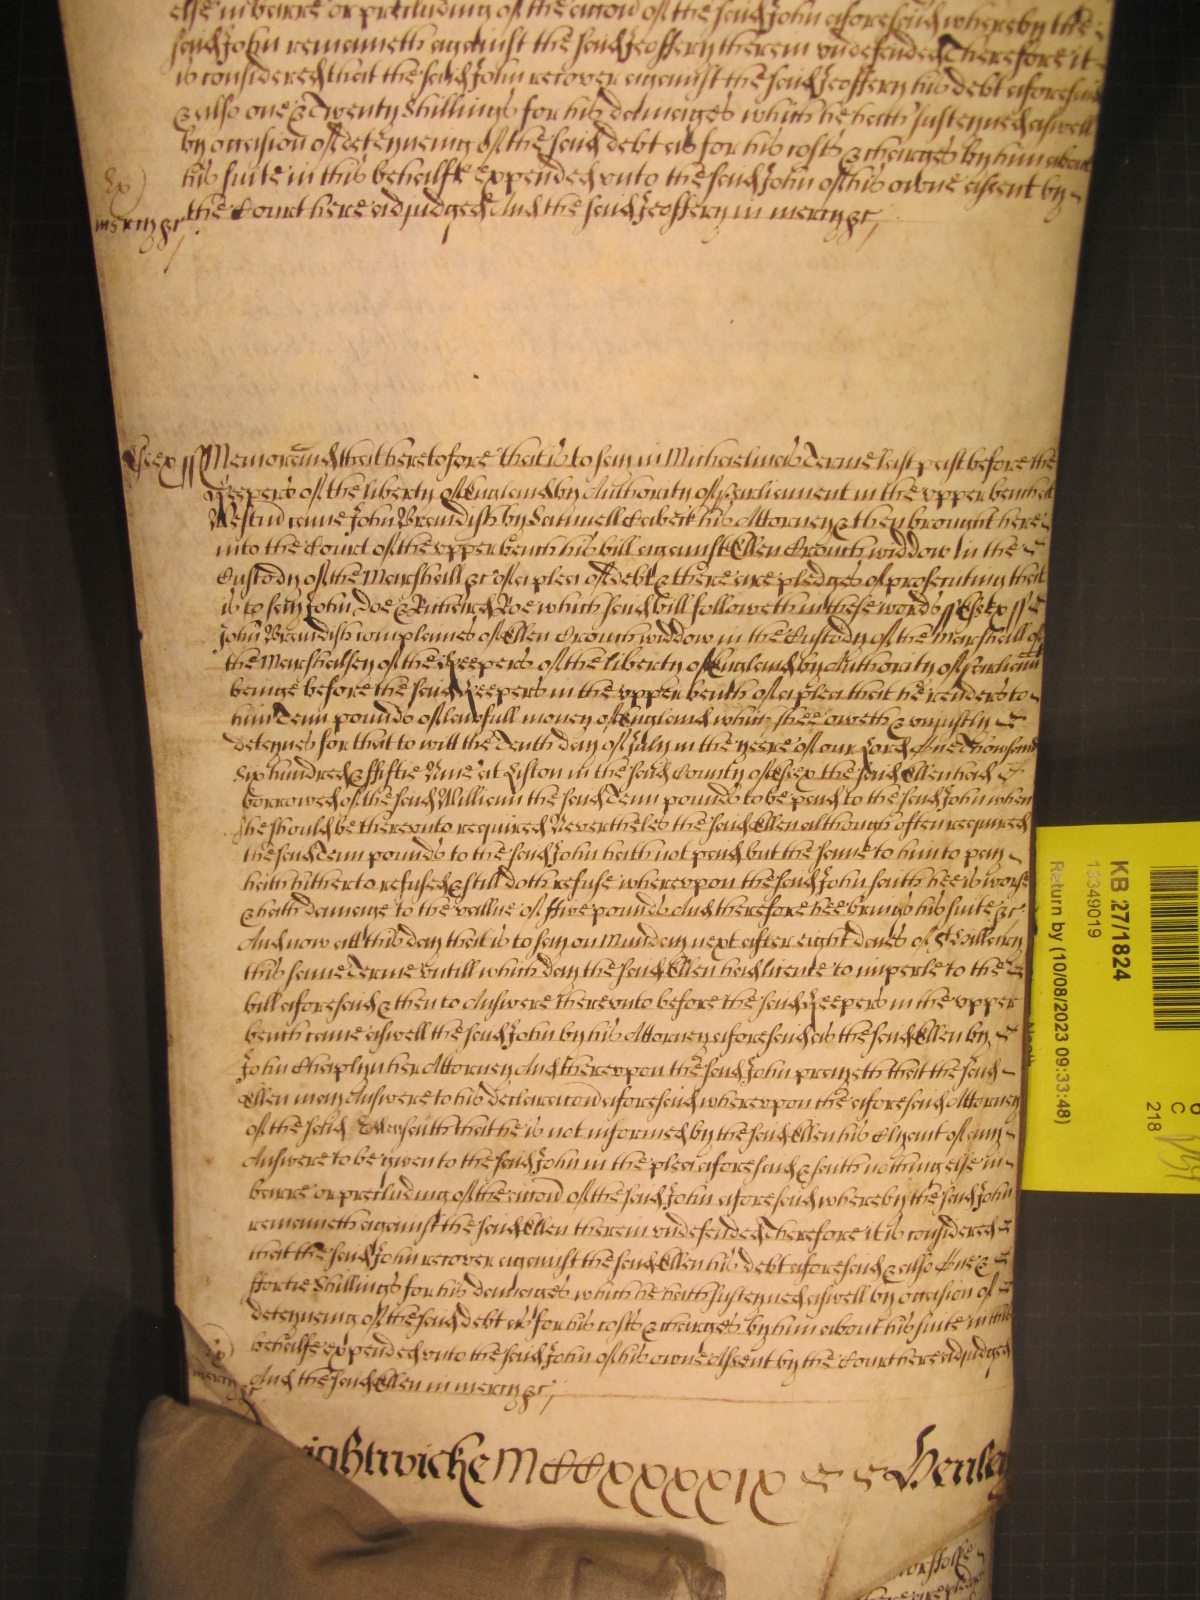 else in barre or precluding of the accion of the said John aforesaid whereby the
said John remaineth against the said Jeoffery therein undefended Therefore it
is considered that the said John recover against the said Jeoffery his debt aforesaid
& also one & Twenty Shillings for his damages which he hath susteyned aswell
by occasion of deteyneing of the said debt as for his costs & charges by him about
his suite in this behalfe expended unto the said John of his owne assent by
the Court here adjudged And the said Jeoffery in mercy &c
Ex)
mercy &c
Essex ss Memorand that heretofore that is to say in Michaelmas Terme last past before the
Keepers of the liberty of England by Authority of Parliament in the upper bench att
Westm came John Brandish by Samuell his Attorney & then brought here
into the Court of the upper bench his bill against Ellen Crouch widdow in the
Custody of the Marshall &c of a plea of debt & there are pledges of prosecuting that
is to say John Doe & Richard Roe which said bill followeth in these words ss Essex ss
John Brandish complaines of Ellen Crouch widdow in the Custody of the Marshall of
the Marshalsey of the Keepers of the liberty of England by Authority of Parliamt
beinge before the said Keepers in the upper bench of a plea that he renders to
him Tenn pounds of lawfull money of England which shee oweth & unjustly
deteynes for that to witt the Tenth day of July in the yeere of our Lord One Thowsand
Six hundred & ffiftie Nine att Liston in the said County of Essex the said Ellen had
borrowed of the said William the said Tenn pounds to be paid to the said John when
she should be thereunto required Neverthelés the said Ellen although often required
the said Tenn pounds to the said John hath not paid but the same to him to pay
hath hitherto refused & still doth refuse whereupon the said John saith hee is worse
& hath damage to the vallue of ffive pounds And therefore hee brings his suite &c
And now att this day that is to say on Munday next after eight dayes of St Hillary
this same Terme untill which day the said Ellen had licence to imparle to the
bill aforesaid & then to Answere thereunto before the said Keepers in the upper
bench came aswell the said John by his Attorney aforesaid as the said Ellen by
John Chaplyn her Attorney And thereupon the said John prayeth that the said
Ellen may Answere to his declaracion aforesaid whereupon the aforesaid Attorney
of the said Ellen saith that he is not informed by the said Ellen his Clyant of any
Answere to be given to the said John in the plea aforesaid & saith nothing else in
barre or precluding of the accion of the said John aforesaid whereby the said John
remaineth against the said Ellen therein undefended Therefore it is considered
that the said John recover against the said Ellen his debt aforesaid & also One &
ffortie Shillings for his damages which he hath susteyned aswell by occasion of
deteyneing of the said debt as for his costs & charges by him about his suite in this
behalfe expended unto the said John of his owne Assent by the Court here adjudged
And the said Ellen in mercy &c
Ex)
mercy &c
ightwicke MCCXXXXIX Henley
KB 27/1824
13349019
Return by (10/08/2023 09:33:48)
C
218